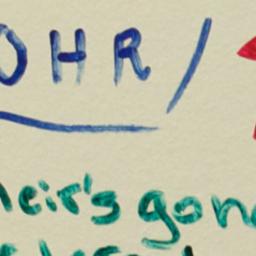 OHR/
heir's gon